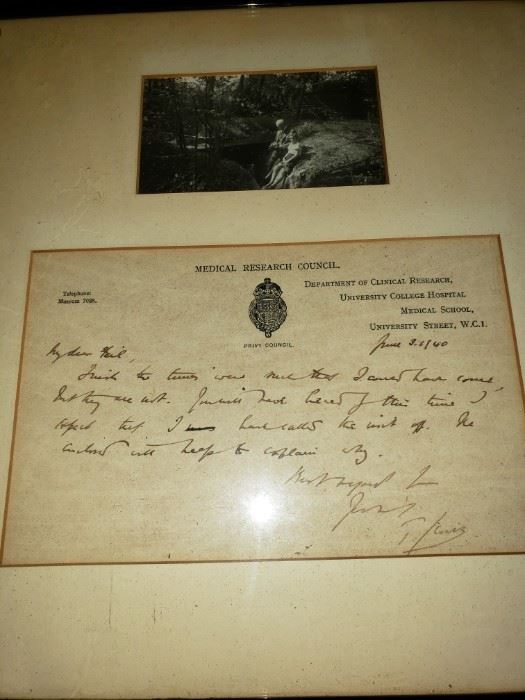 MEDICAL RESEARCH COUNCIL.
Telephone:
Museum 7098.
DEPARTMENT OF CLINICAL RESEARCH,
UNIVERSITY COLLEGE HOSPITAL
MEDICAL SCHOOL,
UNIVERSITY STREET, W.C.1.
PRIVY COUNCIL.
June 3. 1940
My dear
I wish the times were such that I could have come,
but they are not. You will have heard of this time I
expect that I have called the visit off. The
enclosed will help to explain why.
Best regards to